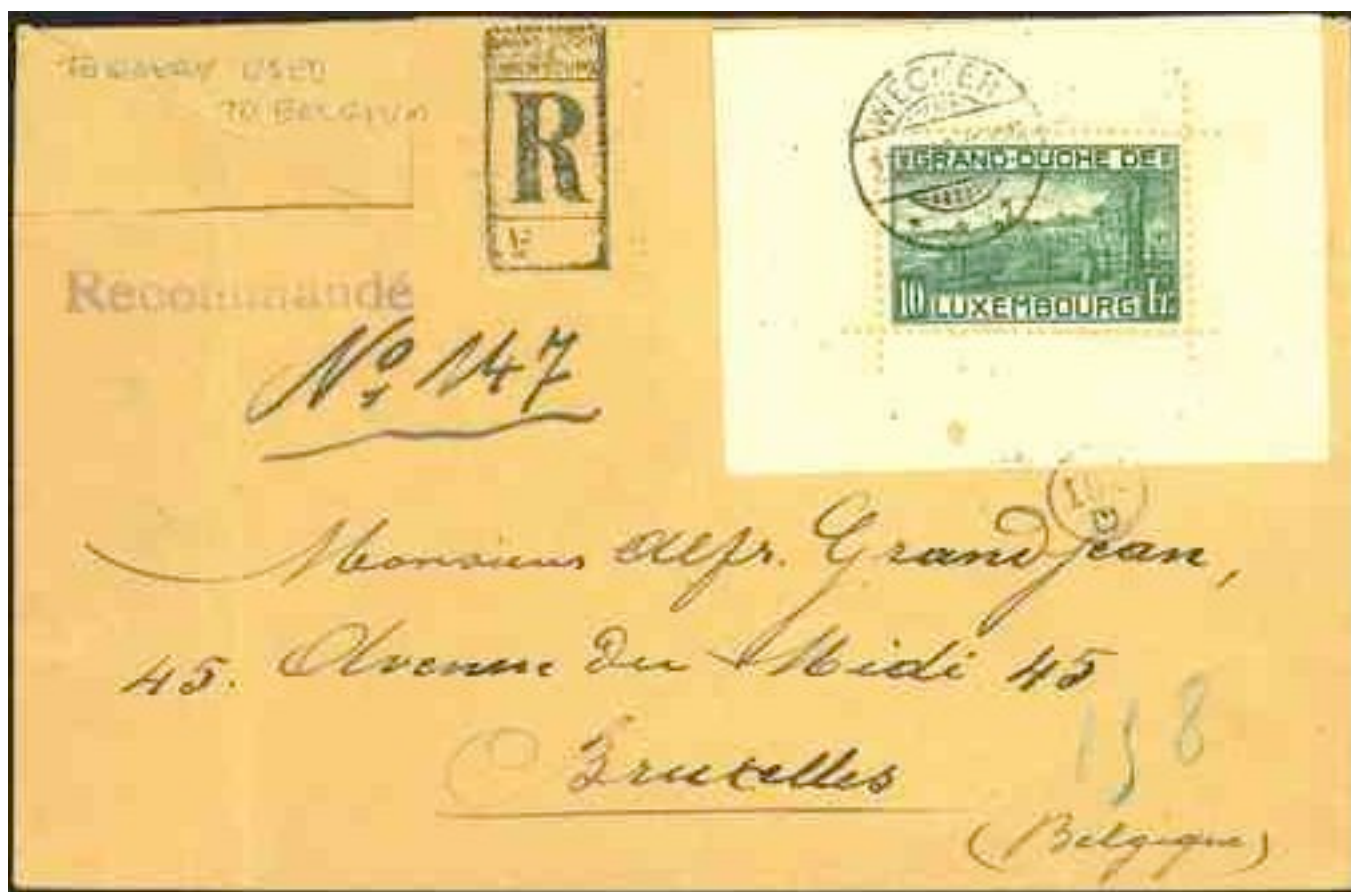 USED
TO BELGIUM
R
Nº
WECKER
GRAND-DUCHE DE
10 LUXEMBOURG Fr.
Recommandé
Nº 147
Monsieur Alfr. Grandjean,
45. Avenue du Midi 45
Bruxelles
158
(Belgique)